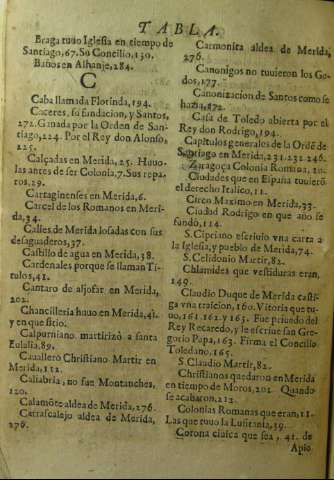 TABLA.
Braga tuuo Iglesia en tiempo de
Santiago, 67. Su Concilio, 130.
Baños en Alhanje, 284.
C
Caba llamada Florinda, 194.
Caceres, su fundacion, y Santos,
272. Ganada por la Orden de San-
tiago, 224. Por el Rey don Alonso,
225.
Calçadas en Merida, 25. Huuo-
las antes de ser Colonia, 7. Sus repa-
ros. 29.
Cartaginenses en Merida, 6.
Carcel de los Romanos en Meri-
da, 34.
Calles de Merida losadas con sus
desaguaderos, 37.
Castillo de agua en Merida, 38.
Cardenales porque se llaman Ti-
tulos, 41.
Cantaro de aljofar en Merida,
202.
Chancilleria huuo en Merida, 41.
y en que sitio.
Calpurniano martirizó a santa
Eulalia, 89.
Cauallero Christiano Martir en
Merida, 112.
Caliabria, no fue Montanches,
120.
Calamõte aldea de Merida, 276.
Carrascalejo aldea de Merida,
276.
Carmonita aldea de Merida,
276.
Canonigos no tuuieron los Go-
dos, 177.
Canonizacion de Santos como se
hazia, 872.
Casa de Toledo abierta por el
Rey don Rodrigo, 194.
Capitulos generales de la Ordẽ de
Santiago en Merida, 231. 232. 246.
Zaragoça Colonia Romana, 20.
Ciudades que en España tuuierõ
el derecho Italico, 11.
Circo Maximo en Merida, 33.
Ciudad Rodrigo en que año se
fundó, 114.
S. Cipriano escriuio vna carta a
la Iglesia, y pueblo de Merida, 74.
S. Celidonio Martir, 82.
Chlamides que vestiduras eran,
149.
Claudio Duque de Merida casti-
ga vna traicion, 160. Vitoria que tu-
uo, 161. 162. y 165. Fue priuado del
Rey Recaredo, y le escriue san Gre-
gorio Papa, 163. Firma el Concilio
Toledano, 165.
S. Claudio Martir, 82.
Christianos quedaron en Merida
en tiempo de Moros, 201. Quando
se acabaron, 212.
Colonias Romanas que eran, 11.
Las que tuuo la Lusitania, 39.
Corona ciuica que sea, 41. de
Apio